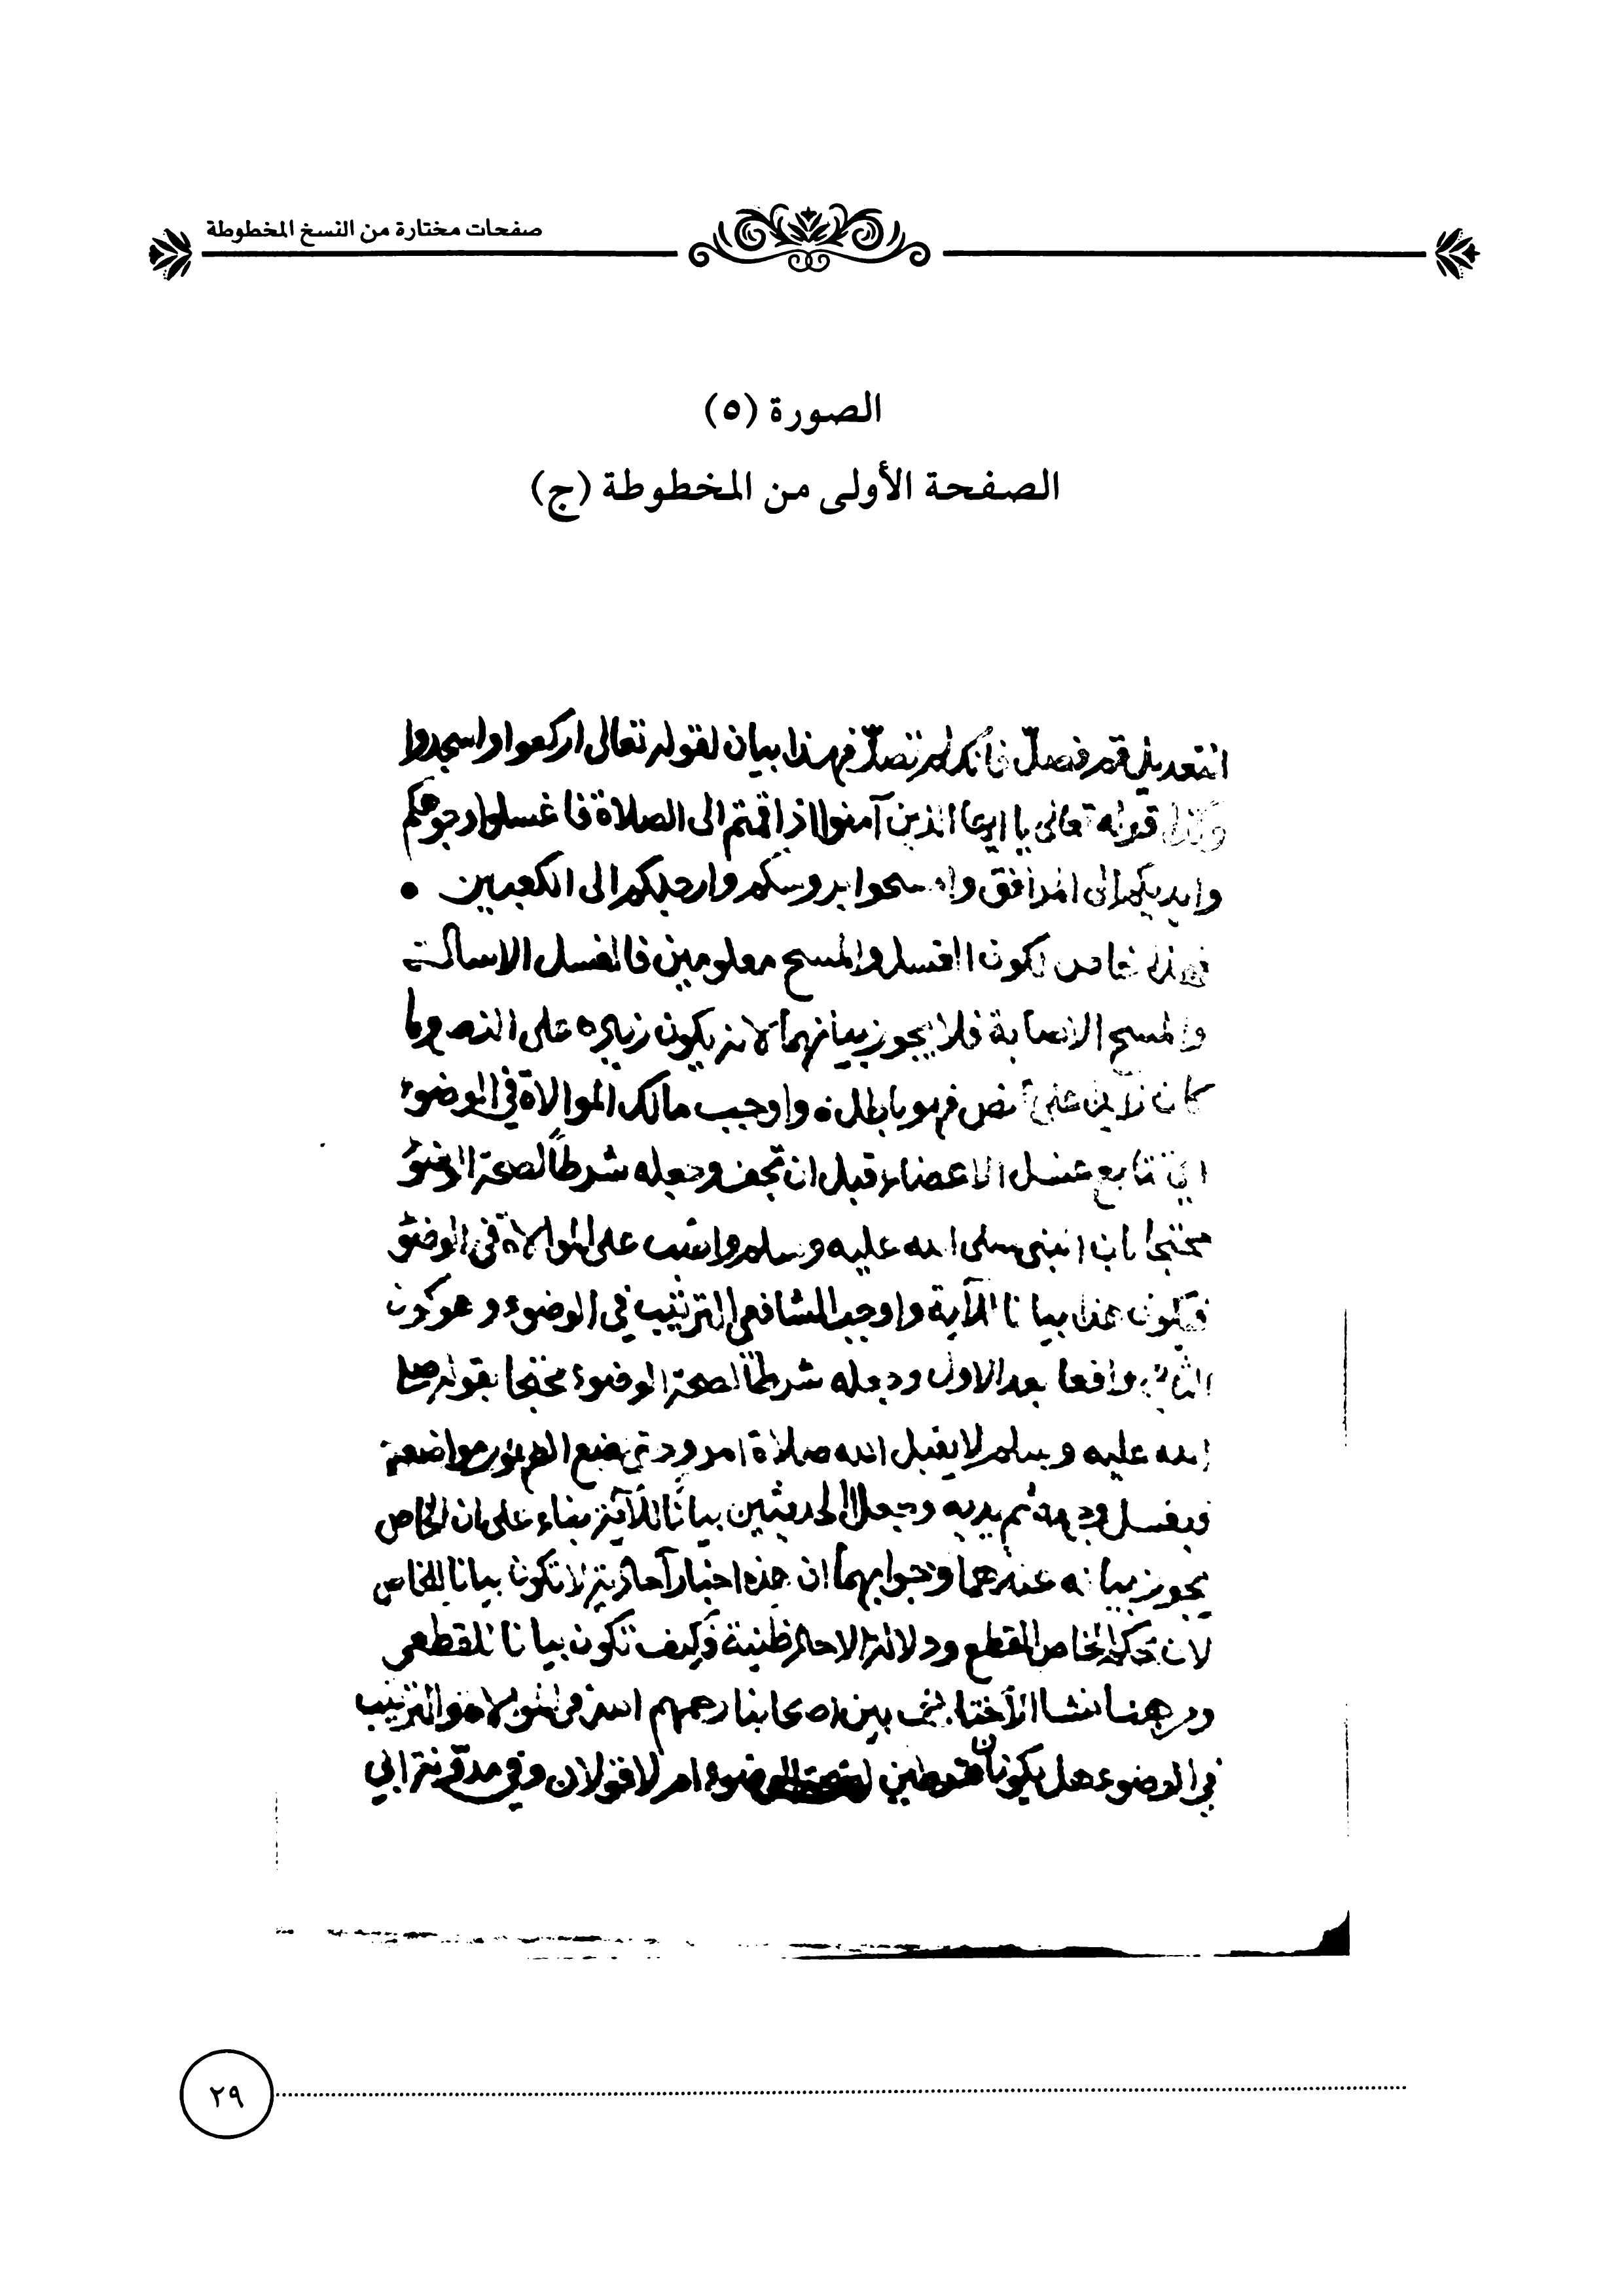 صفحات مختارة من النسخ المخطوطة
الصورة (٥)
الصفحة الأولى من المخطوطة (ج)
التعديل قم فصلّ فانك لم تصلّ فهذا بيان لقوله تعالى اركعوا واسجدوا
وكذا قوله تعالى يا ايها الذين آمنوا اذا قمتم الى الصلاة فاغسلوا وجوهكم
وايديكم الى المرافق وامسحوا بروسكم وارجلكم الى الكعبين
فهذا خاص لكون الغسل والمسح معلومين فالغسل الاسالة
والمسح الاصابة فلا يجوز بيانهما لانه يكون زيادة على النص وما
كان زايدا على نص فهو باطل واوجب مالك الموالاة في الوضوء
اي تتابع غسل الاعضاء قبل ان تجف وجعله شرطاً لصحة الوضؤ
محتجا بان النبي صلى الله عليه وسلم واضب على الموالاة في الوضؤ
فيكون هذا بيانا للآية واوجب الشافعي الترتيب في الوضوء وهو كون
الثاني واقعا بعد الاول وجعله شرطاً لصحة الوضوء محتجا بقوله صلى
الله عليه وسلم لا يقبل الله صلاة امرء حتى يضع الطهور مواضعه
فيغسل وجهه ثم يديه وجعل الحديثين بيانًا للآية بناء على ان الخاص
يجوز بيانه عندهما وجوابهما ان هذه اخبار آحادية لا تكون بيانا للخاص
لان حكم الخاص القطع ودلالة الاحاد ظنية فكيف تكون بيانا للقطعي
ومن هنا نشا الاختلاف بين اصحابنا رحمهم الله في الموالاة والترتيب
في الوضوء هل يكونان شرطين لصحة الوضوء ام لا قولان وفي مدقنة ابي
٢٩